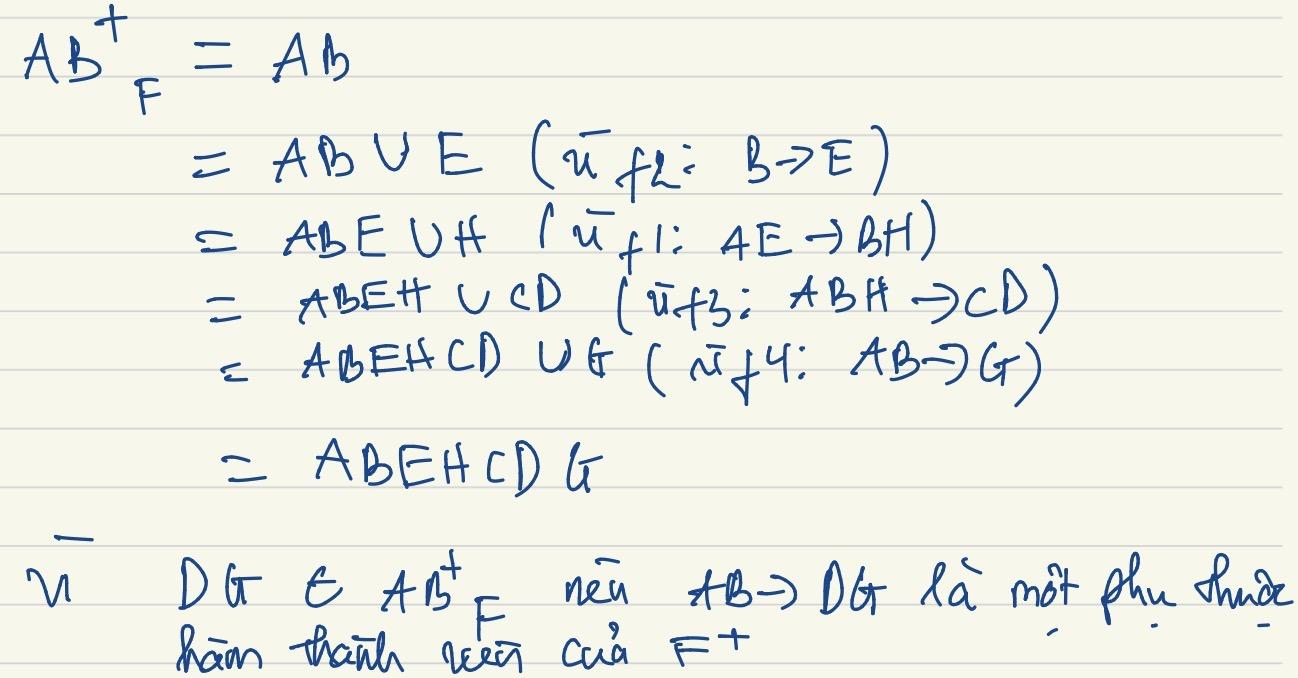 AB⁺F = AB
= AB ∪ E (vì f2: B→E)
= ABE ∪ H (vì f1: AE→BH)
= ABEH ∪ CD (vì f3: ABH→CD)
= ABEHCD ∪ G (vì f4: AB→G)
= ABEHCDG
Vì DG ∈ AB⁺F nên AB→DG là một phụ thuộc
hàm thành viên của F⁺